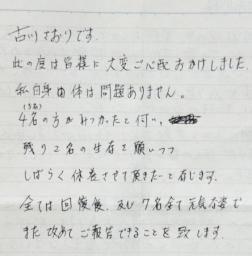 古川さおりです。
此の度は皆様に大変ご心配おかけしました。
私自身由体は問題ありません。
(うち)
4名の方がみつかったと伺い、
残り2名の生存を願いつつ
しばらく休養させて頂きたいと存じます。
全ては回復後、及び7名全て元気な姿で
また改めてご報告できることを致します。